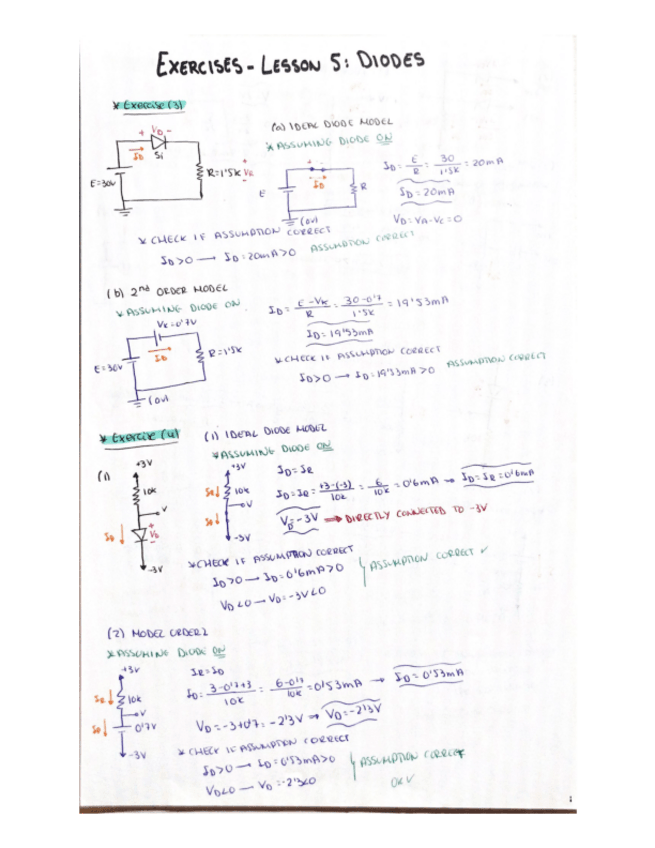 EXERCISES - LESSON 5: DIODES
* Exercise (3)
(a) IDEAL DIODE MODEL
* ASSUMING DIODE ON
+ VD -
ID
Si
E=30V
R=1'5K
+
VR
-
E
ID
R
(0V)
ID = E/R = 30/1'5K = 20mA
ID = 20mA
VD = VA - VC = 0
* CHECK IF ASSUMPTION CORRECT
ID>0 → ID = 20mA>0 ASSUMPTION CORRECT
(b) 2nd ORDER MODEL
* ASSUMING DIODE ON
VK=0'7V
ID
E=30V
R=1'5K
(0V)
ID = E-VK/R = 30-0'7/1'5K = 19'53mA
ID = 19'53mA
* CHECK IF ASSUMPTION CORRECT
ID>0 → ID = 19'53mA>0 ASSUMPTION CORRECT
* Exercise (4)
(1) IDEAL DIODE MODEL
* ASSUMING DIODE ON
(1)
+3V
10K
V
ID
+
VD
-
-3V
+3V
IR
10K
V
ID
-3V
ID = IR
ID = IR = +3-(-3)/10K = 6/10K = 0'6mA → ID = IR = 0'6mA
VD = -3V ⇒ DIRECTLY CONNECTED TO -3V
* CHECK IF ASSUMPTION CORRECT
ID>0 → ID = 0'6mA>0
VD<0 → VD = -3V<0
ASSUMPTION CORRECT ✓
(2) MODEL ORDER 2
* ASSUMING DIODE ON
+3V
IR
10K
V
ID
0'7V
-3V
IR = ID
ID = 3-0'7+3/10K = 6-0'7/10K = 0'53mA → ID = 0'53mA
VD = -3+0'7 = -2'3V → VD = -2'3V
* CHECK IF ASSUMPTION CORRECT
ID>0 → ID = 0'53mA>0
VD<0 → VD = -2'3<0
ASSUMPTION CORRECT
OK ✓